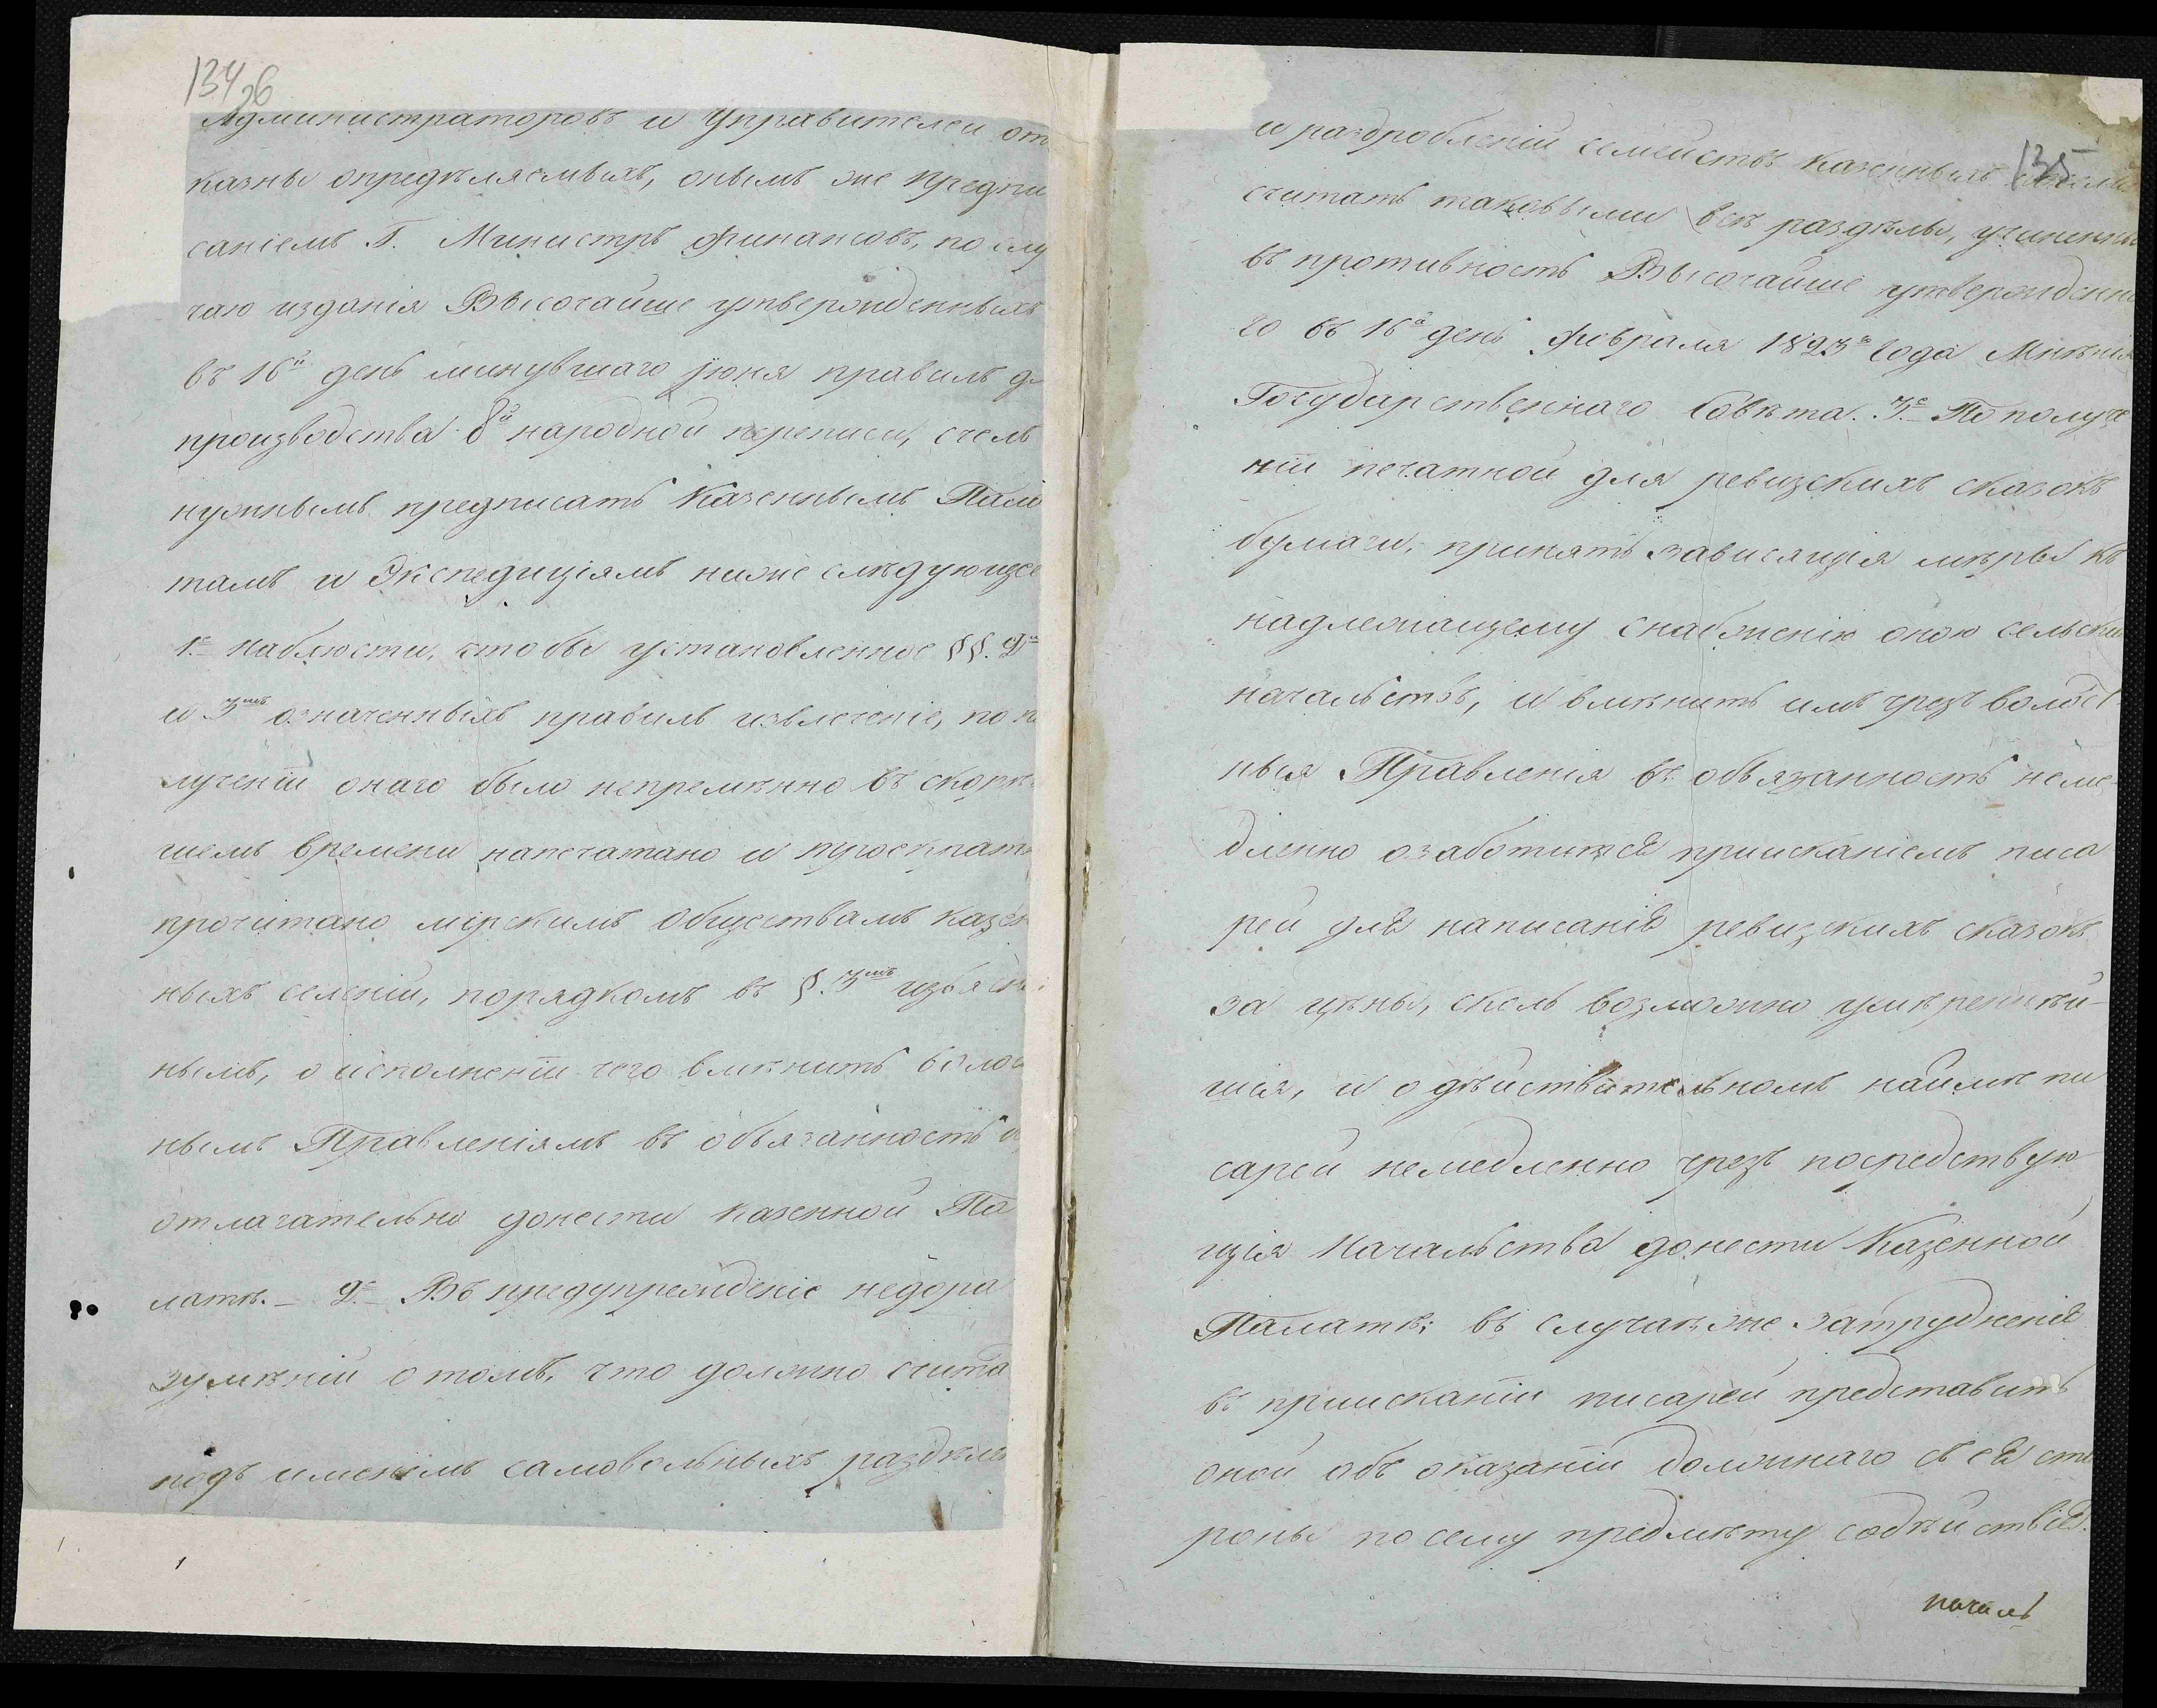 134об
Администраторовъ и Управителей от
казны опредѣляемыхъ, онымъ же предпи
саніемъ Г. Министръ Финансовъ, по слу
чаю изданія Высочайше утвержденныхъ
въ 16й день минувшаго іюня правилъ дл
производства 8й народной переписи, счелъ
нужнымъ предписать Казеннымъ Пала
тамъ и Экспедиціямъ ниже слѣдующее
1е Наблюсти, чтобы установленное §§. 2мъ
и 3мъ означенныхъ правилъ извлеченіе, по по
лученіи онаго было непремѣнно въ скорѣ
шемъ времени напечатано и троекратн
прочитано мірскимъ Обществамъ казен
ныхъ селеній, порядкомъ въ §. 3мъ изъяснен
нымъ, о исполненіи чего вмѣнить волос
нымъ Правленіямъ въ обязанность
отлагательно донести казенной Па
латѣ. – 2е – Въ предупрежденіе недора
зумѣній о томъ, что должно счита
подъ именемъ самовольныхъ раздѣлов
135
и раздробленій семействъ казенныхъ
считать таковыми всѣ раздѣлы, учиненны
въ противность Высочайше утвержденна
го въ 16й день Февраля 1823го года Мнѣнія
Государственнаго Совѣта. 3е – По получе
ніи печатной для ревизскихъ сказокъ
бумаги, принять зависящія мѣры къ
надлежащему снабженію оною сельски
начальствъ, и вмѣнить имъ чрезъ волост
ныя Правленія въ обязанность неме-
дленно озаботится пріисканіемъ писа
рей для написанія ревизскихъ сказокъ
за цѣны, сколь возможно умѣреннѣй-
шія, и о дѣйствительномъ наймѣ пи
сарей немедленно чрезъ посредствую
щія Начальства донести Казенной
Палатѣ; въ случаѣ же затрудненія
въ пріисканіи писарей представить
оной объ оказаніи должнаго съ ея сто
роны по сему предмѣту содѣйствія.
началь